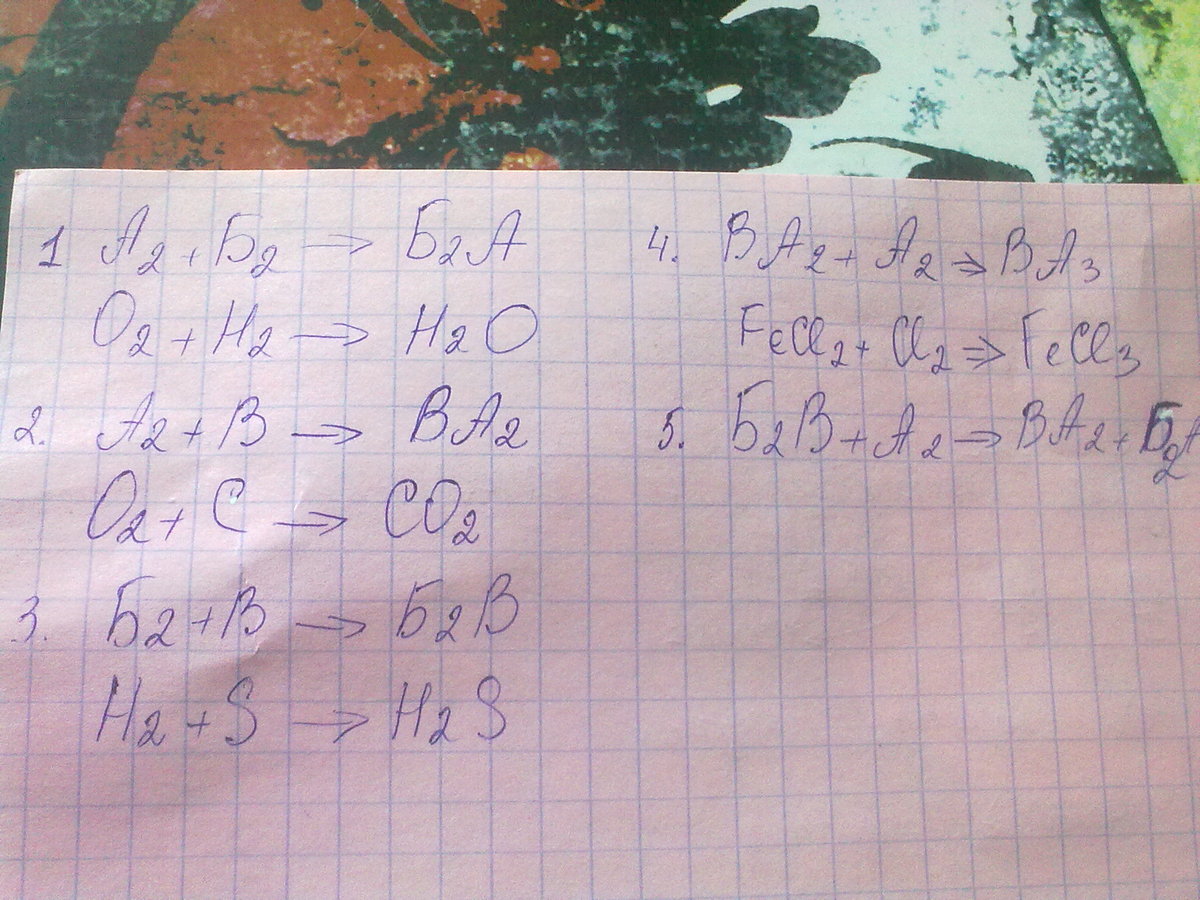 1 А2 + Б2 → Б2А
О2 + Н2 → Н2О
2. А2 + В → ВА2
О2 + С → СО2
3. Б2 + В → Б2В
Н2 + S → Н2S
4. ВА2 + А2 ⇒ ВА3
FeCl2 + Cl2 ⇒ FeCl3
5. Б2В + А2 → ВА2 + Б2А